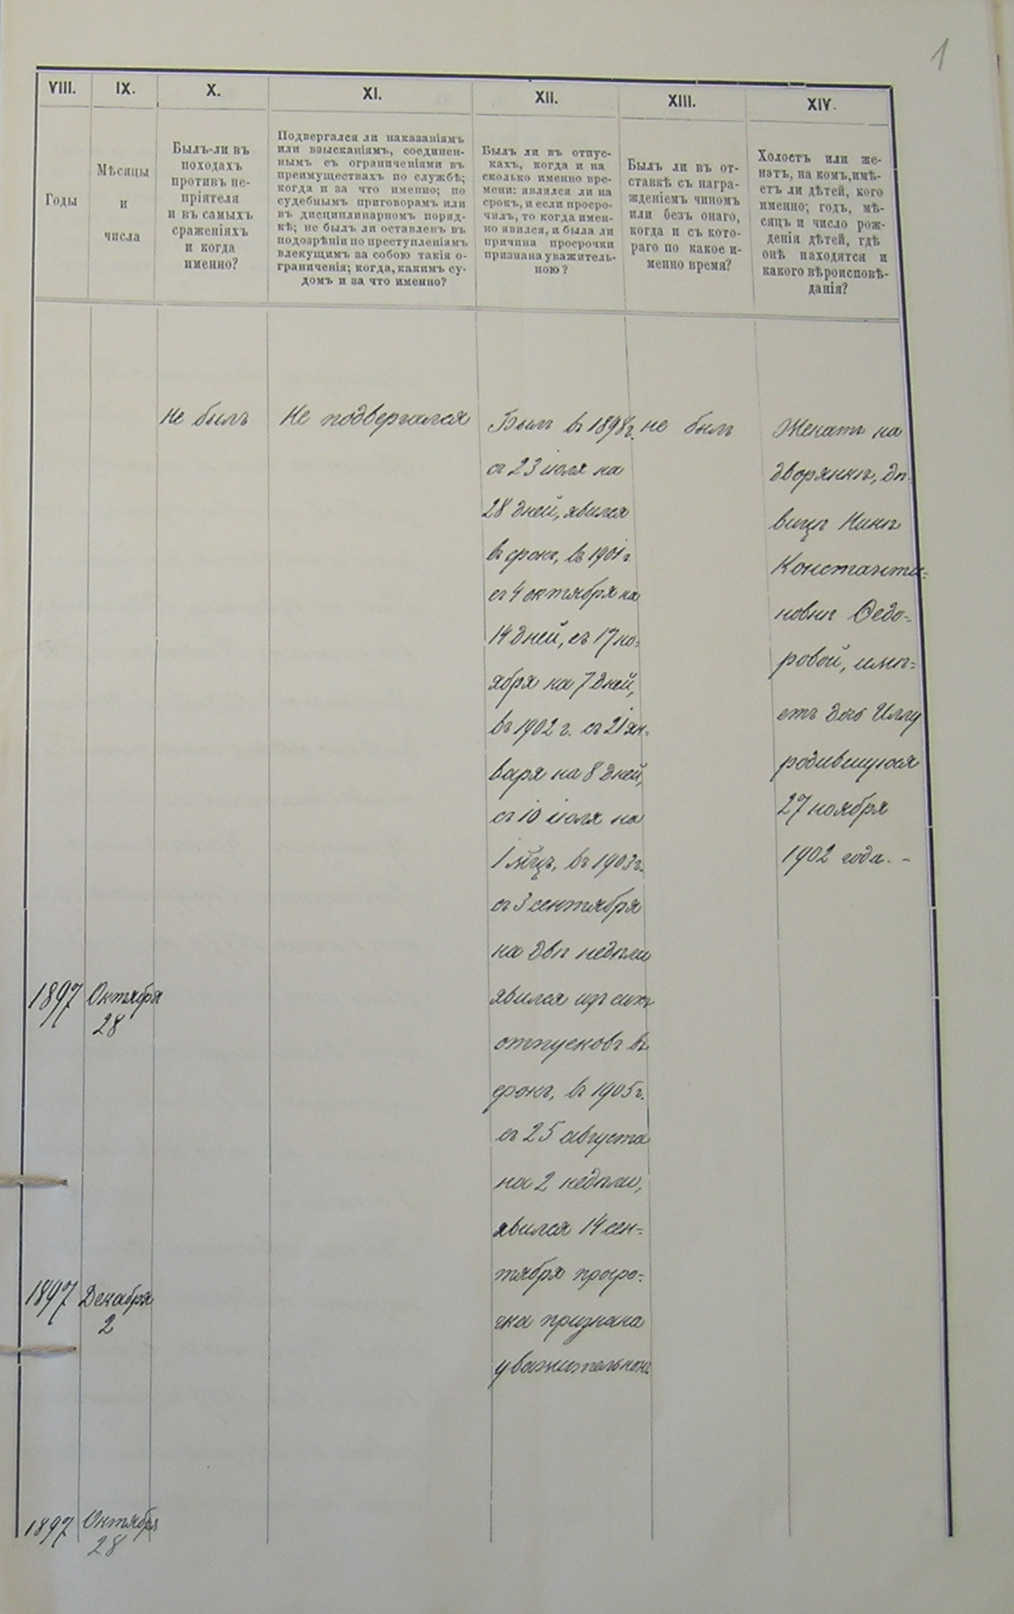 1
VIII.
IX.
X.
XI.
XII.
XIII.
XIV.
Годы
Мѣсяцы
и
числа
Былъ-ли въ
походахъ
противъ не-
пріятеля
и въ самыхъ
сраженіяхъ
и когда
именно?
Подвергался ли наказаніямъ
или взысканіямъ, соединен-
нымъ съ ограниченіями въ
преимуществахъ по службѣ;
когда и за что именно; по
судебнымъ приговорамъ или
въ дисциплинарномъ поряд-
кѣ; не былъ ли оставленъ въ
подозрѣніи по преступленіямъ
влекущимъ за собою такія о-
граниченія; когда, какимъ су-
домъ и за что именно?
Былъ ли въ отпус-
кахъ, когда и на
сколько именно вре-
мени: являлся ли на
срокъ, и если просро-
чилъ, то когда имен-
но явился, и была ли
причина просрочки
признана уважитель-
ною?
Былъ ли въ от-
ставкѣ съ награ-
жденіемъ чиномъ
или безъ онаго,
когда и съ кото-
раго по какое и-
менно время?
Холостъ или же-
натъ, на комъ, имѣ-
етъ ли дѣтей, кого
именно; годъ, мѣ-
сяцъ и число рож-
денія дѣтей, гдѣ
онѣ находятся и
какого вѣроисповѣ-
данія?
не былъ
Не подвергался
Былъ въ 1898 г.
съ 23 іюля на
28 дней, явился
въ срокъ, въ 1901 г.
съ 4 октября на
14 дней, съ 17 но-
ября на 7 дней,
въ 1902 г. съ 21 ян-
варя на 8 дней,
съ 10 іюля на
1 мѣц., въ 1903 г.
съ 3 сентября
на двѣ недѣли
явился изъ сихъ
отпусковъ въ
срокъ, въ 1905 г.
съ 25 августа
на 2 недѣли,
явился 14 сен-
тября просро-
чка признана
уважительною
не былъ
Женатъ на
дворянкѣ, дѣ-
вицѣ Нинѣ
Константи-
новнѣ Ѳедо-
ровой, имѣ-
етъ дочь
родившуюся
27 ноября
1902 года. –
1897 Октября
28
1897 Декабря
2
1897 Октября
28